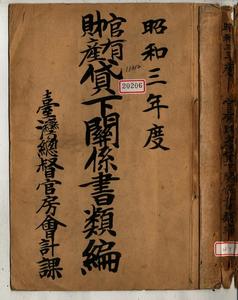 昭和三年度
官有財産貸下關係書類編
20206
臺灣總督官房會計課